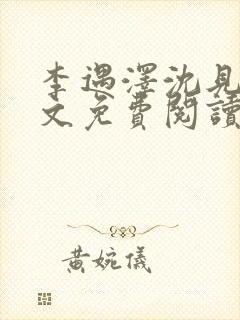 李遇澤沈見
文免費閱讀
黃婉儀